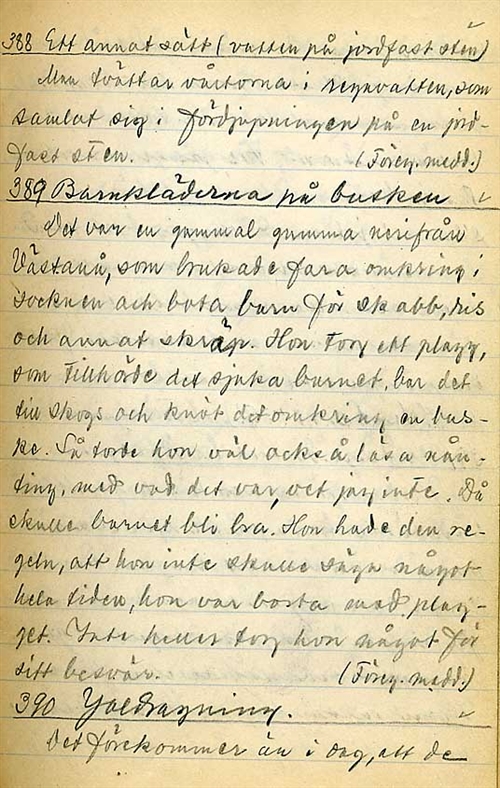 388 Ett annat sätt (vatten på jordfast sten)
Man tvättar vårtorna i regnvatten, som
samlat sig i fördjupningen på en jord-
fast sten. (Föreg. medd.)
389 Barnkläderna på busken
Det var en gammal gumma nerifrån
Västanå, som brukade fara omkring i
socknen och bota barn för skabb, ris
och annat skräp. Hon tog ett plagg,
som tillhörde det sjuka barnet, bar det
till skogs och knöt det omkring en bus-
ke. Så torde hon väl också läsa nån-
ting, med vad det var, vet jag inte. Då
skulle barnet bli bra. Hon hade den re-
geln, att hon inte skulle säga något
hela tiden, hon var borta med plag-
get. Inte heller tog hon något för
sitt besvär. (Föreg. medd.)
390 Yoeldragning.
Det förekommer än i dag, att de